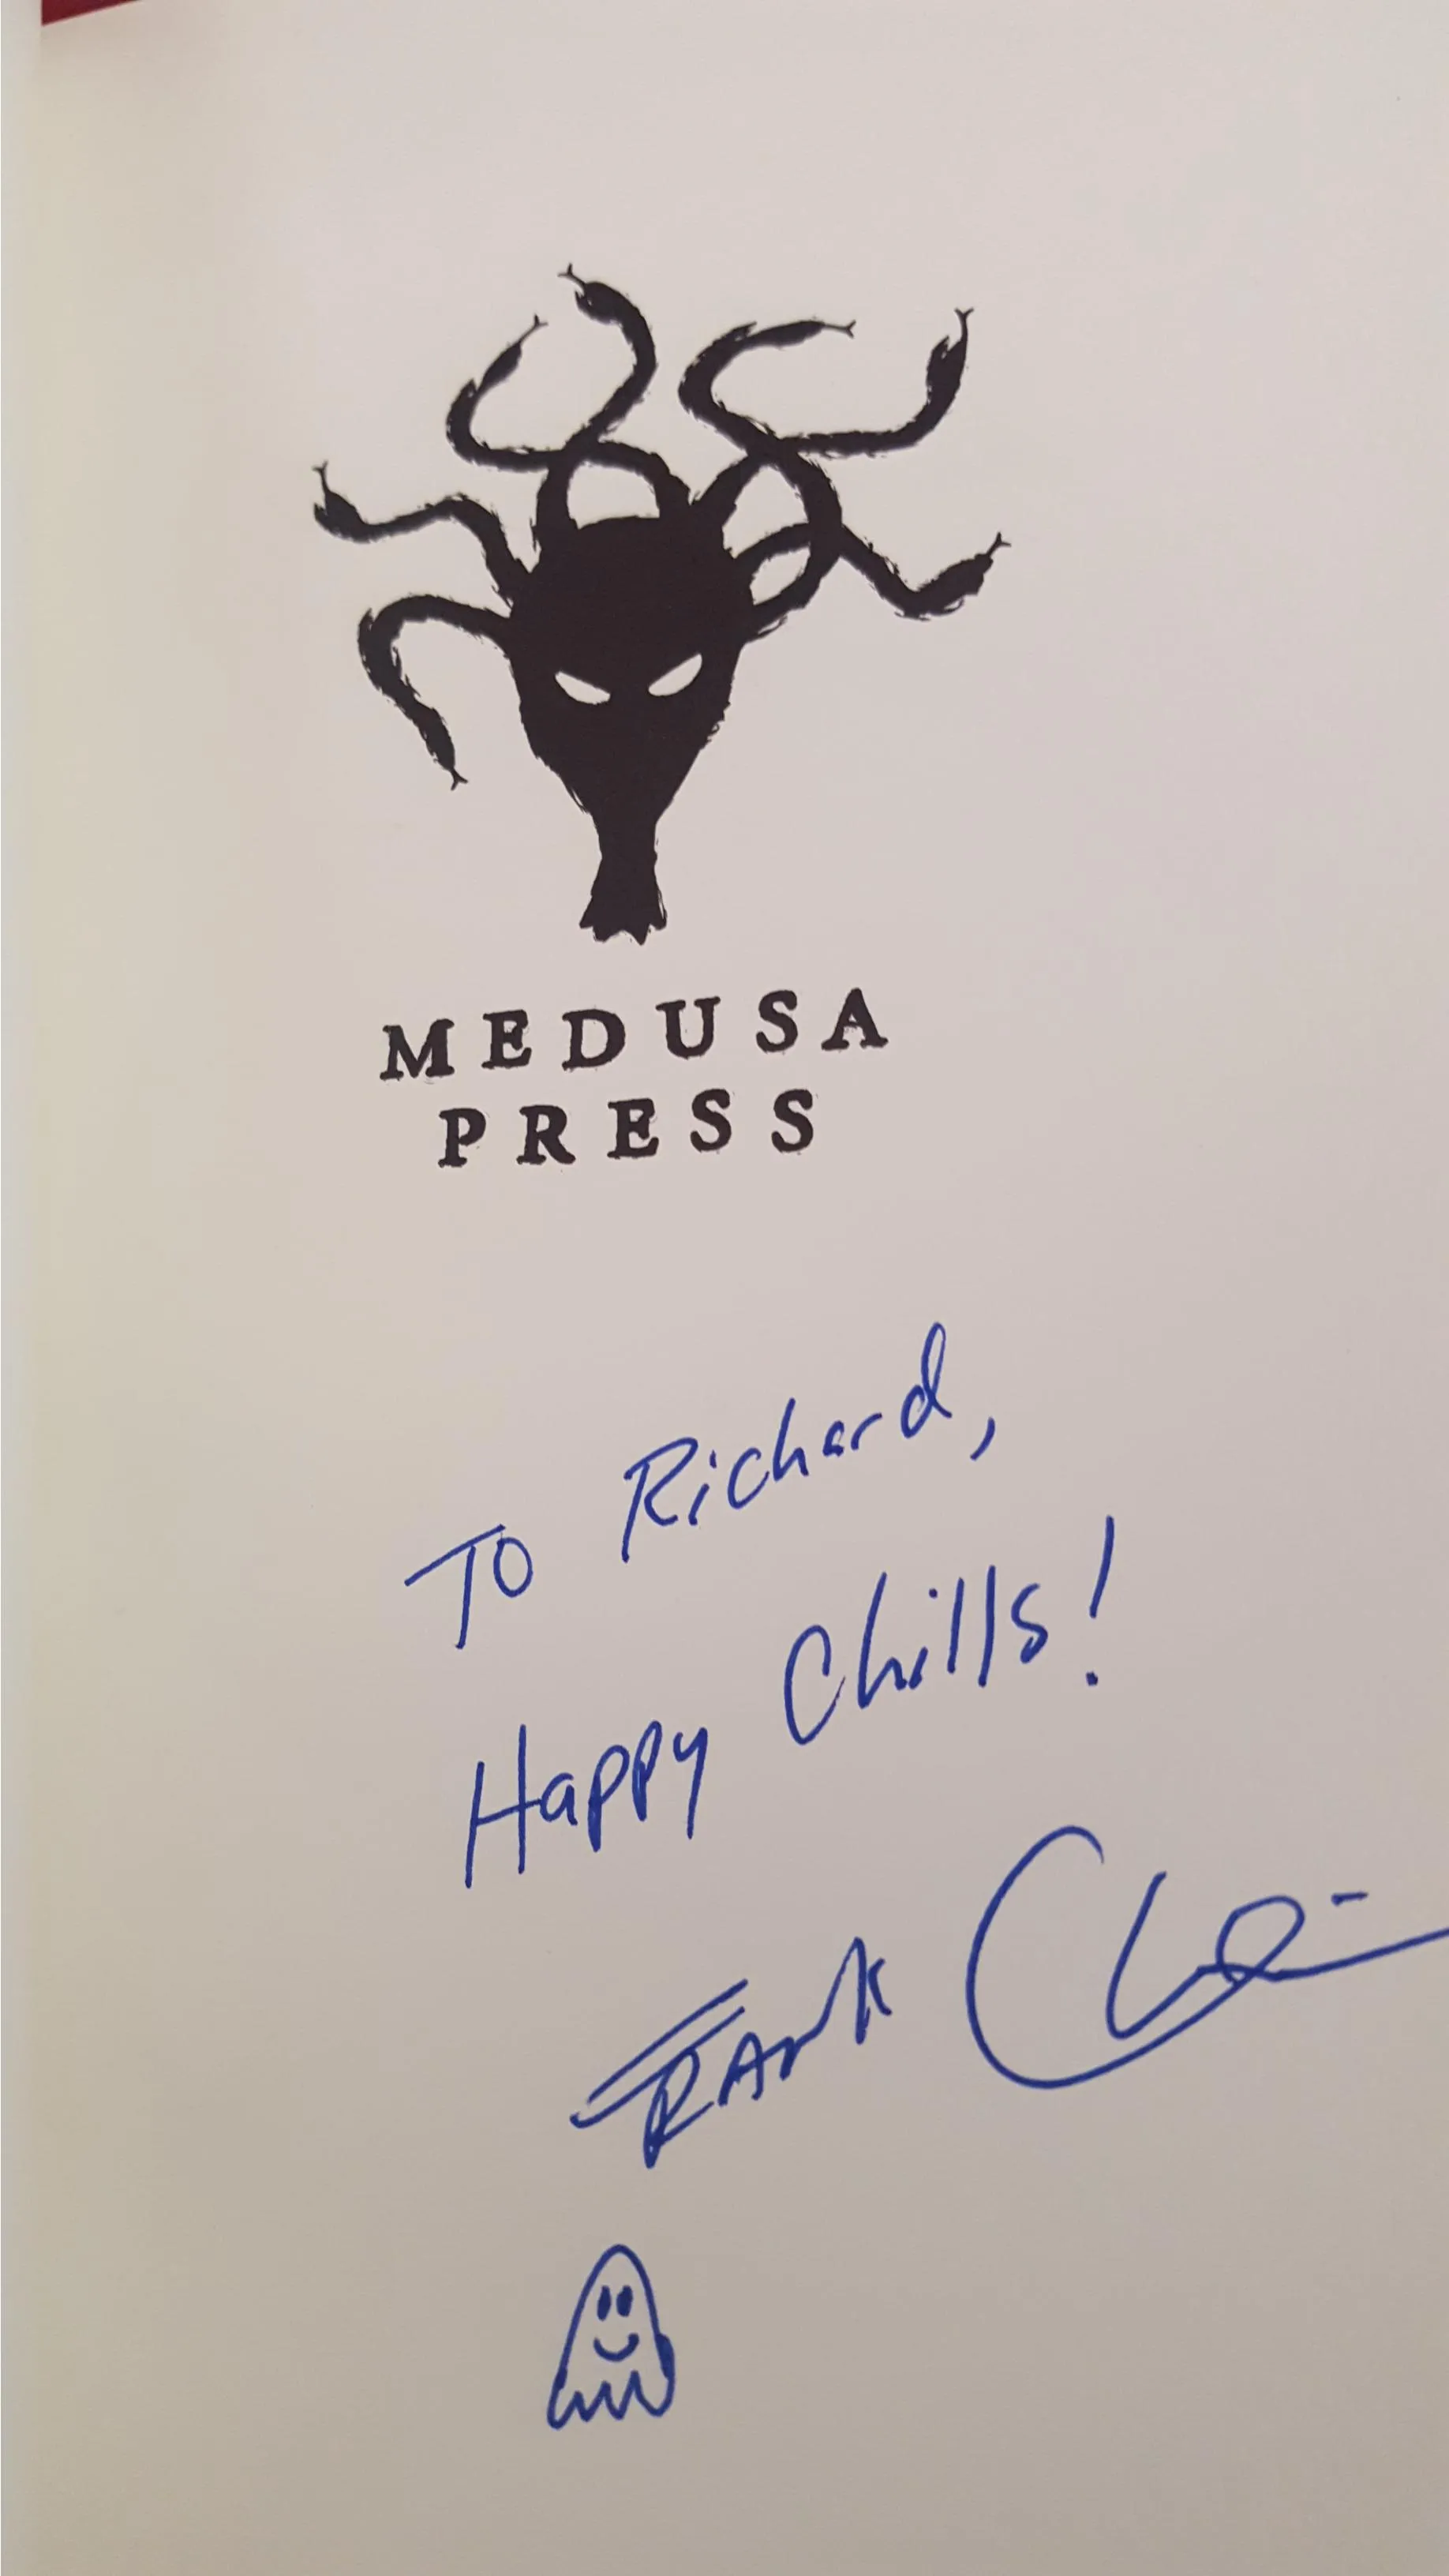 MEDUSA
PRESS
To Richard,
Happy Chills!
FRANK